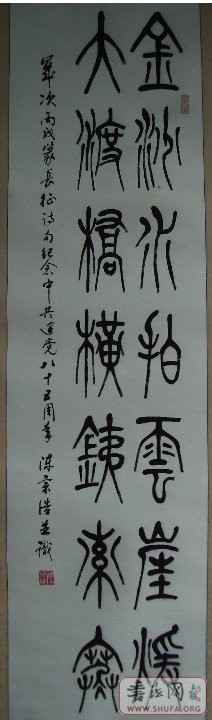 金沙水拍雲崖煖
大渡橋橫銕索寒
歲次丙戌篆長征詩句紀念中共建党八十五周年 浩並識
書法网
WWW.SHUFA.ORG